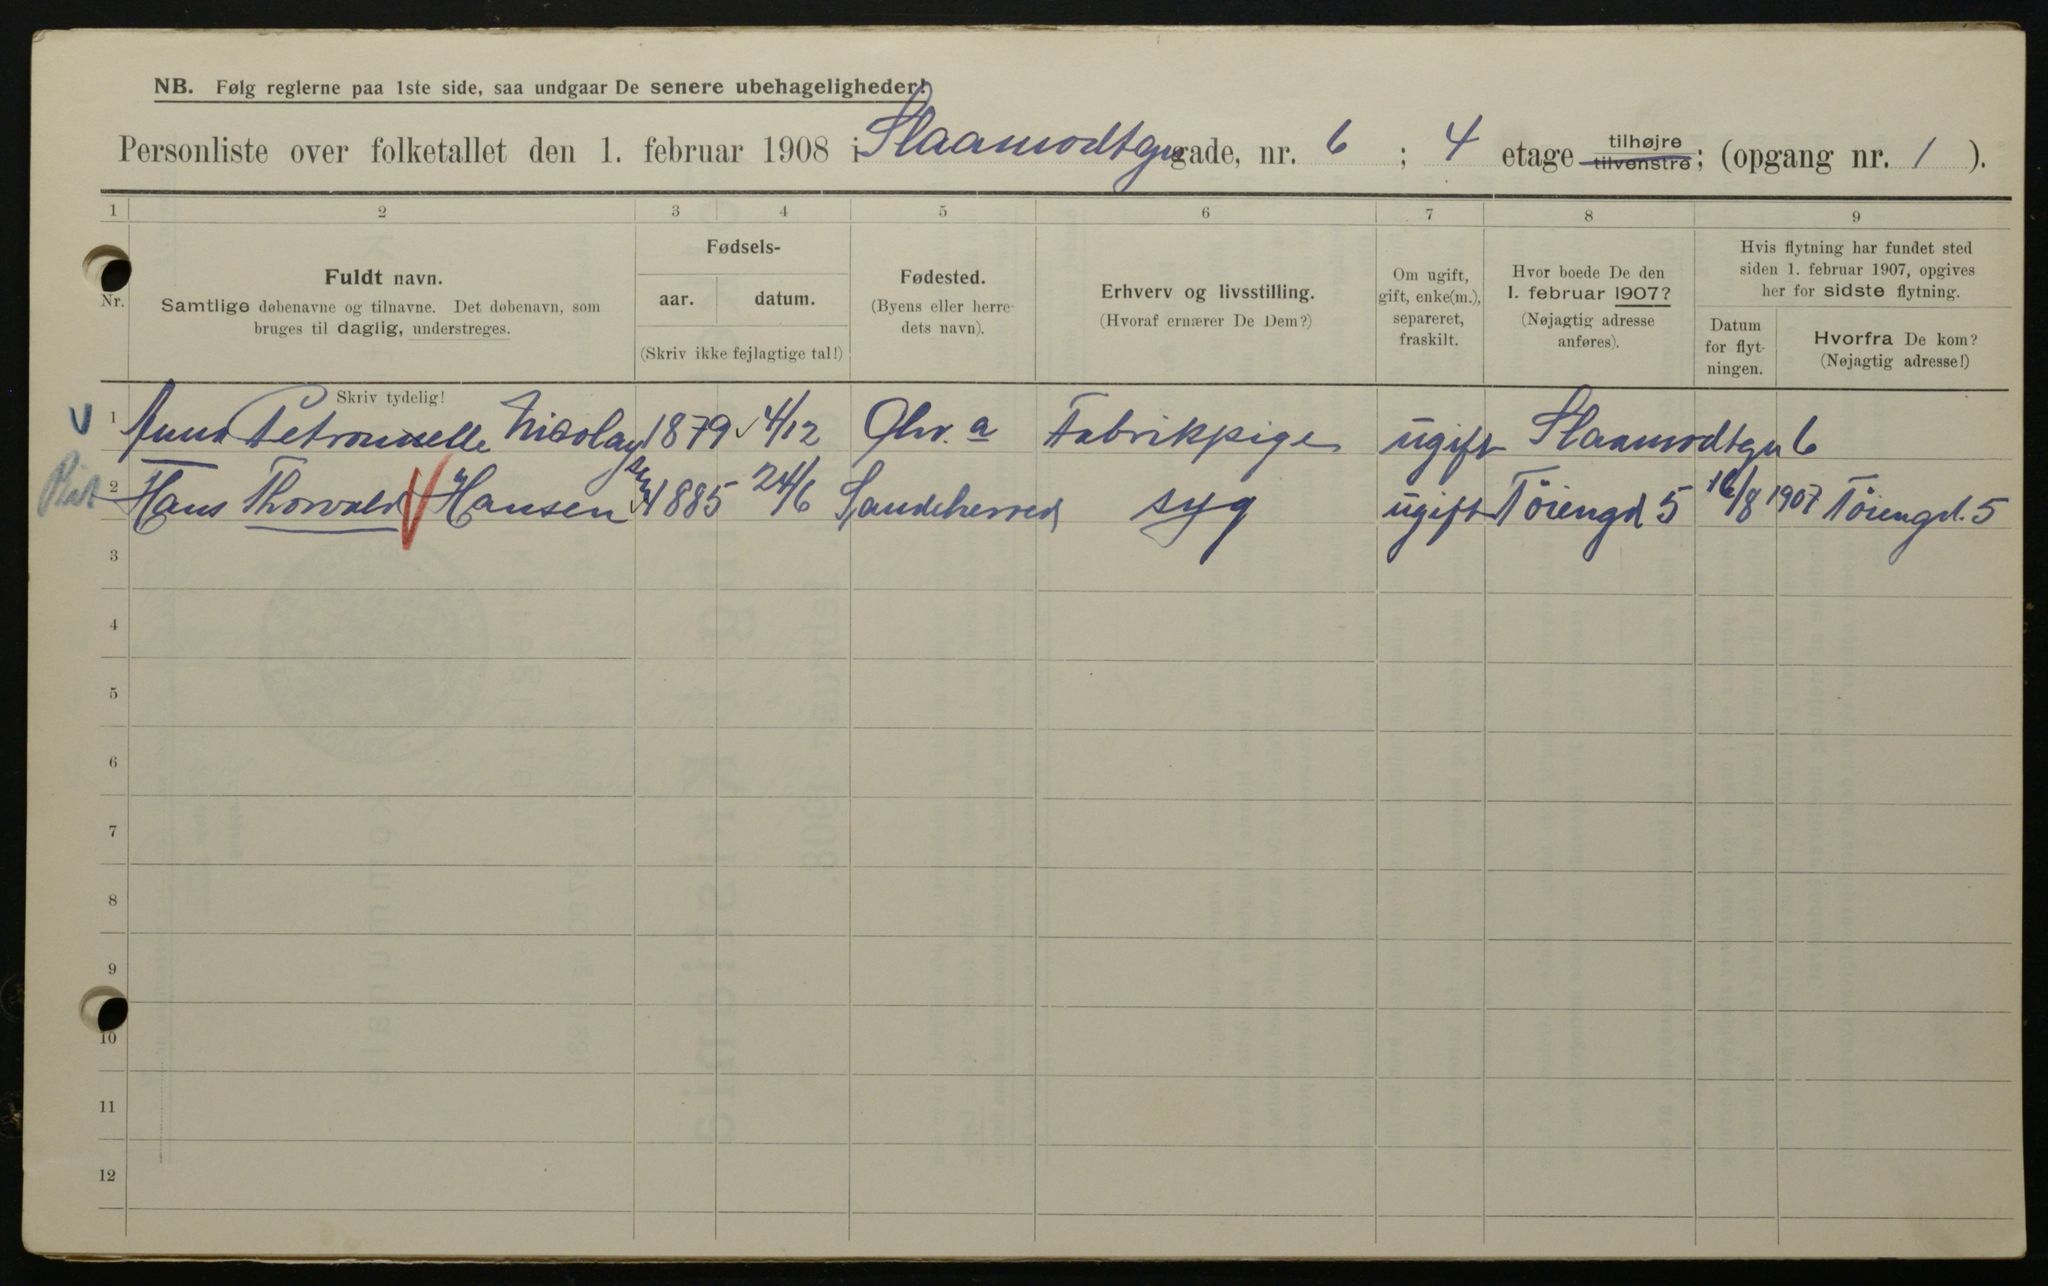 NB. Følg reglerne paa 1ste side, saa undgaar De senere ubehageligheder!
Personliste over folketallet den 1. februar 1908 i Slaamodtgn gade, nr. 6 ; 4 etage tilhøjre tilvenstre; (opgang nr. 1 ).
1 2 3 4 5 6 7 8 9
Nr.
Fuldt navn.
Samtlige døbenavne og tilnavne. Det døbenavn, som
bruges til daglig, understreges.
Fødsels-
aar. datum.
(Skriv ikke fejlagtige tal!)
Fødested.
(Byens eller herre-
dets navn).
Erhverv og livsstilling.
(Hvoraf ernærer De Dem?)
Om ugift,
gift, enke(m.),
separeret,
fraskilt.
Hvor boede De den
1. februar 1907?
(Nøjagtig adresse
anføres).
Hvis flytning har fundet sted
siden 1. februar 1907, opgives
her for sidste flytning.
Datum
for flyt-
ningen.
Hvorfra De kom?
(Nøjagtig adresse!)
Skriv tydelig!
V 1 Anna Petronnelle Nicolaysen 1879 4/12 Chr. a Fabrikpige ugift Slaamodtgn 6
2 Hans Thorvald Hansen 1885 24/6 Sandeherred syg ugift Töiengd 5 16/8 1907 Töiengd. 5
3
4
5
6
7
8
9
10
11
12